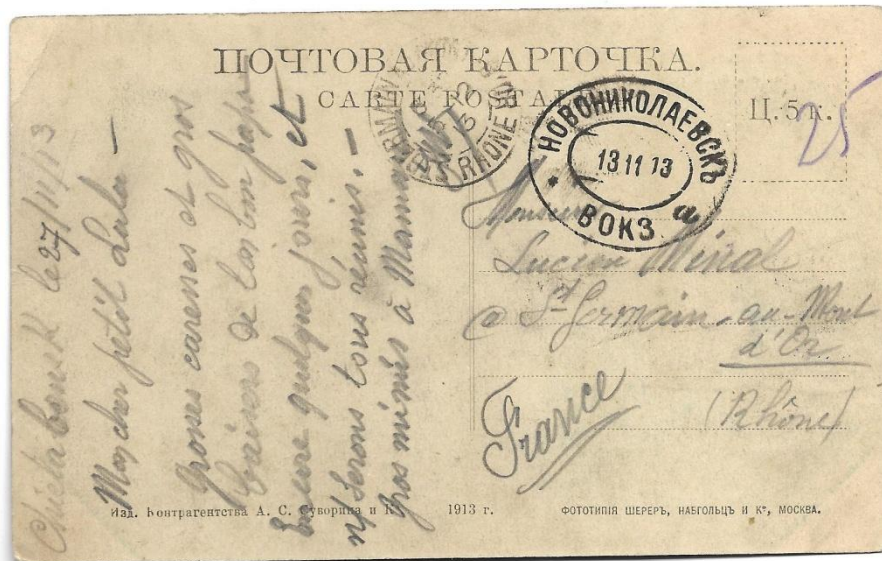 ПОЧТОВАЯ КАРТОЧКА.
CARTE POSTALE
Ц. 5 к.
25
НОВОНИКОЛАЕВСКЪ
13 11 13
ВОКЗ. а
RHONE
le 27/11/13
Mon cher petit Lulu —
Grosses caresses et gros
baisers de ton papa
Encore quelques jours, et
n/ serons tous réunis. —
gros mimis à Maman
Monsieur
Lucien
St Germain-au-Mont
d'Or
(Rhône)
France
Изд. Контрагентства А. С. Суворина и К
1913 г.
ФОТОТИПІЯ ШЕРЕРЪ, НАБГОЛЬЦЪ И Кº, МОСКВА.